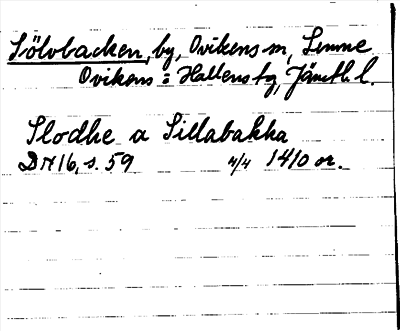 Sölvbacken, by, Ovikens sn, Sunne
Ovikens o Hallens tg, Jämtl. l.
Slodhe a Sillabakka
DN 16, s. 59 4/4 1410 or.